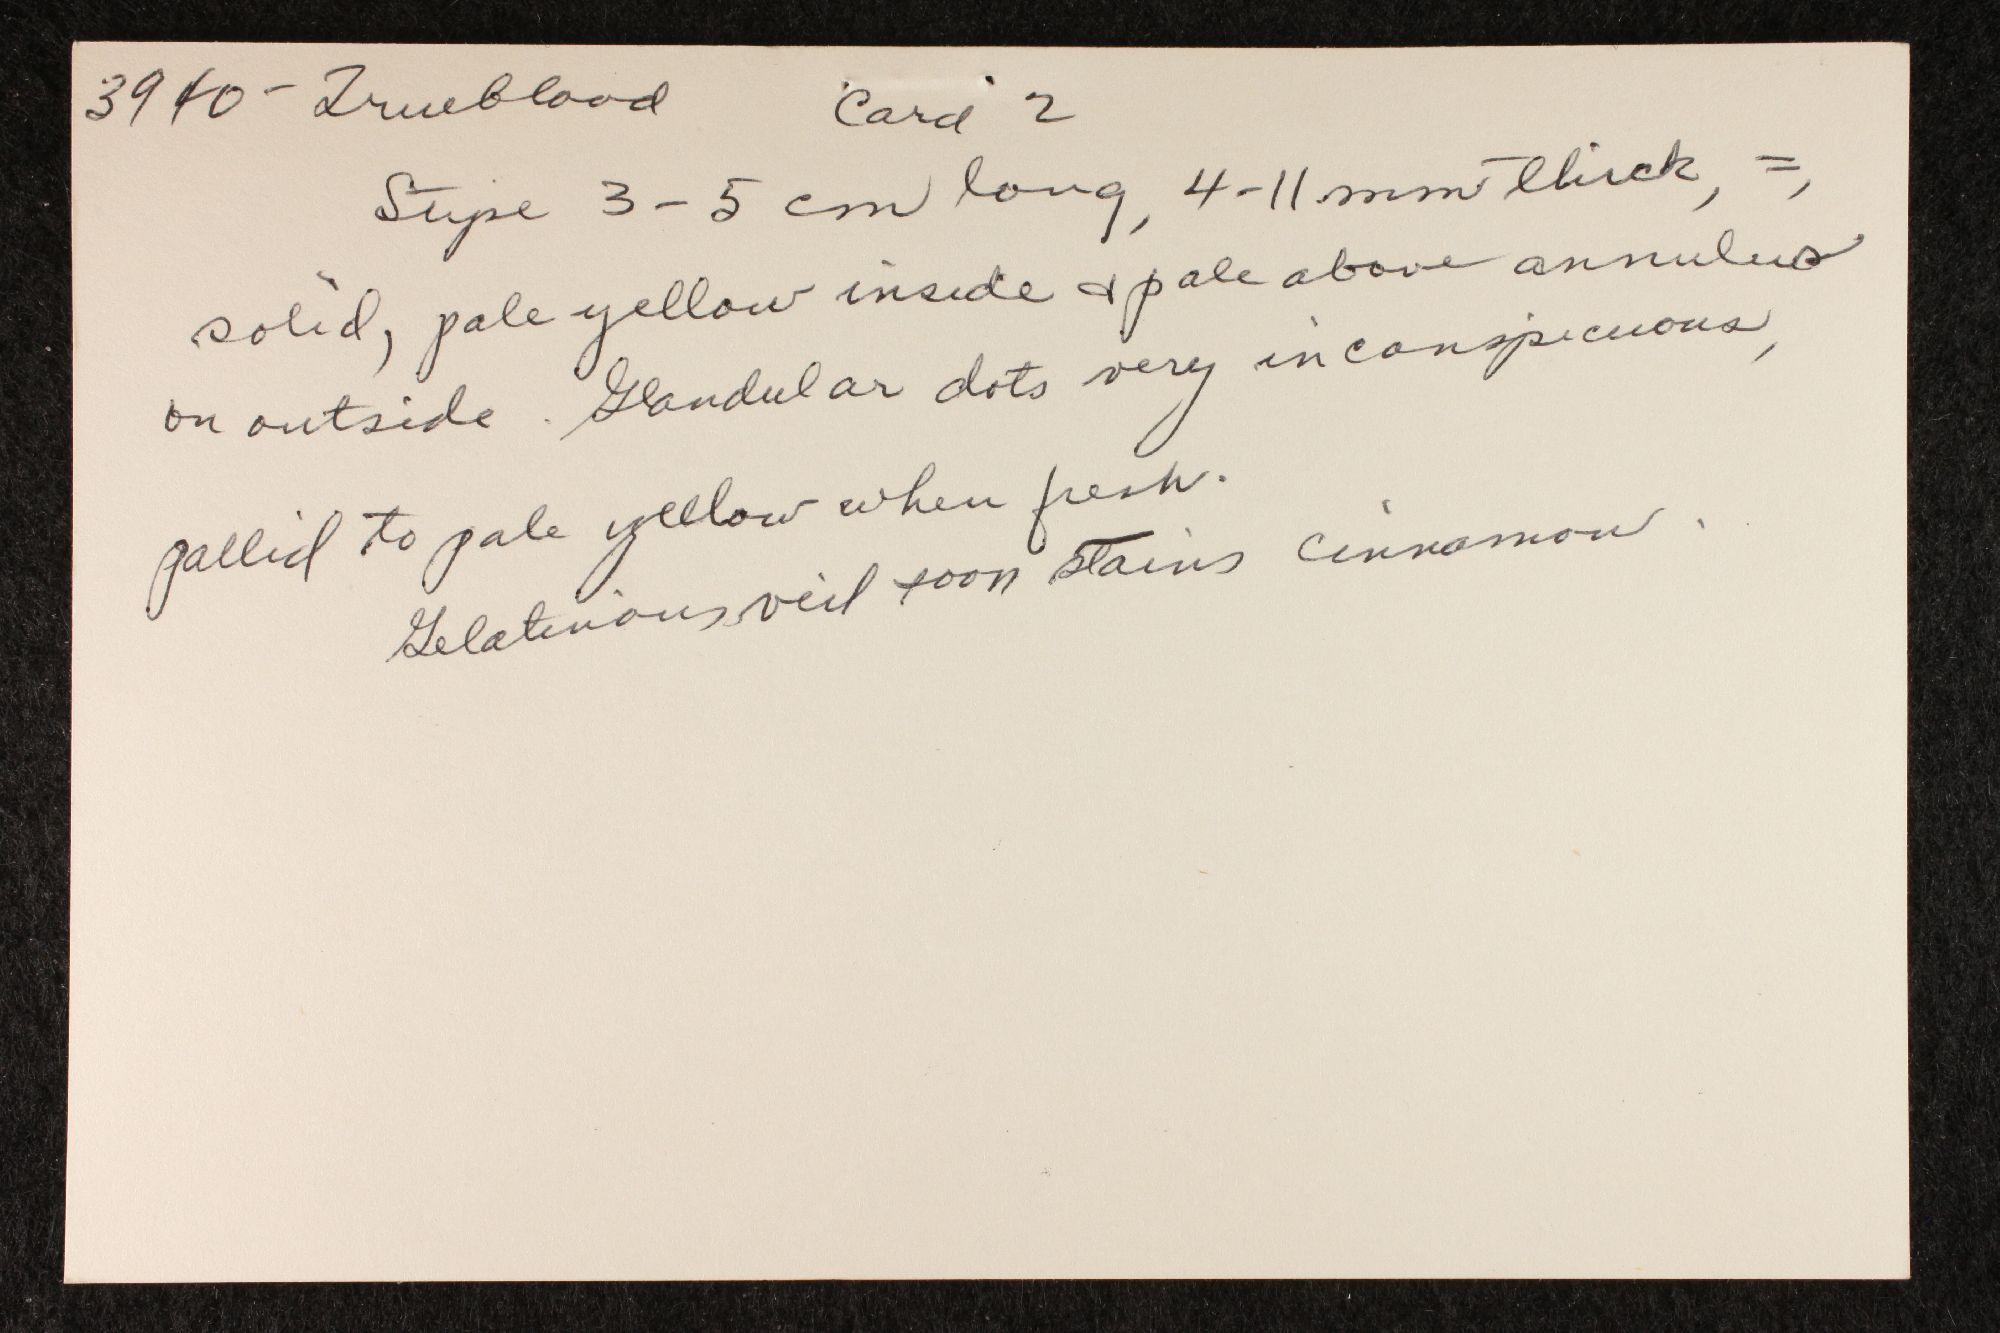 3940 - Trueblood Card 2
Stipe 3-5 cm long, 4-11 mm thick, =,
solid, pale yellow inside & pale above annulus
on outside. Glandular dots very inconspicuous,
pallid to pale yellow when fresh.
Gelatinous veil soon stains cinnamon.